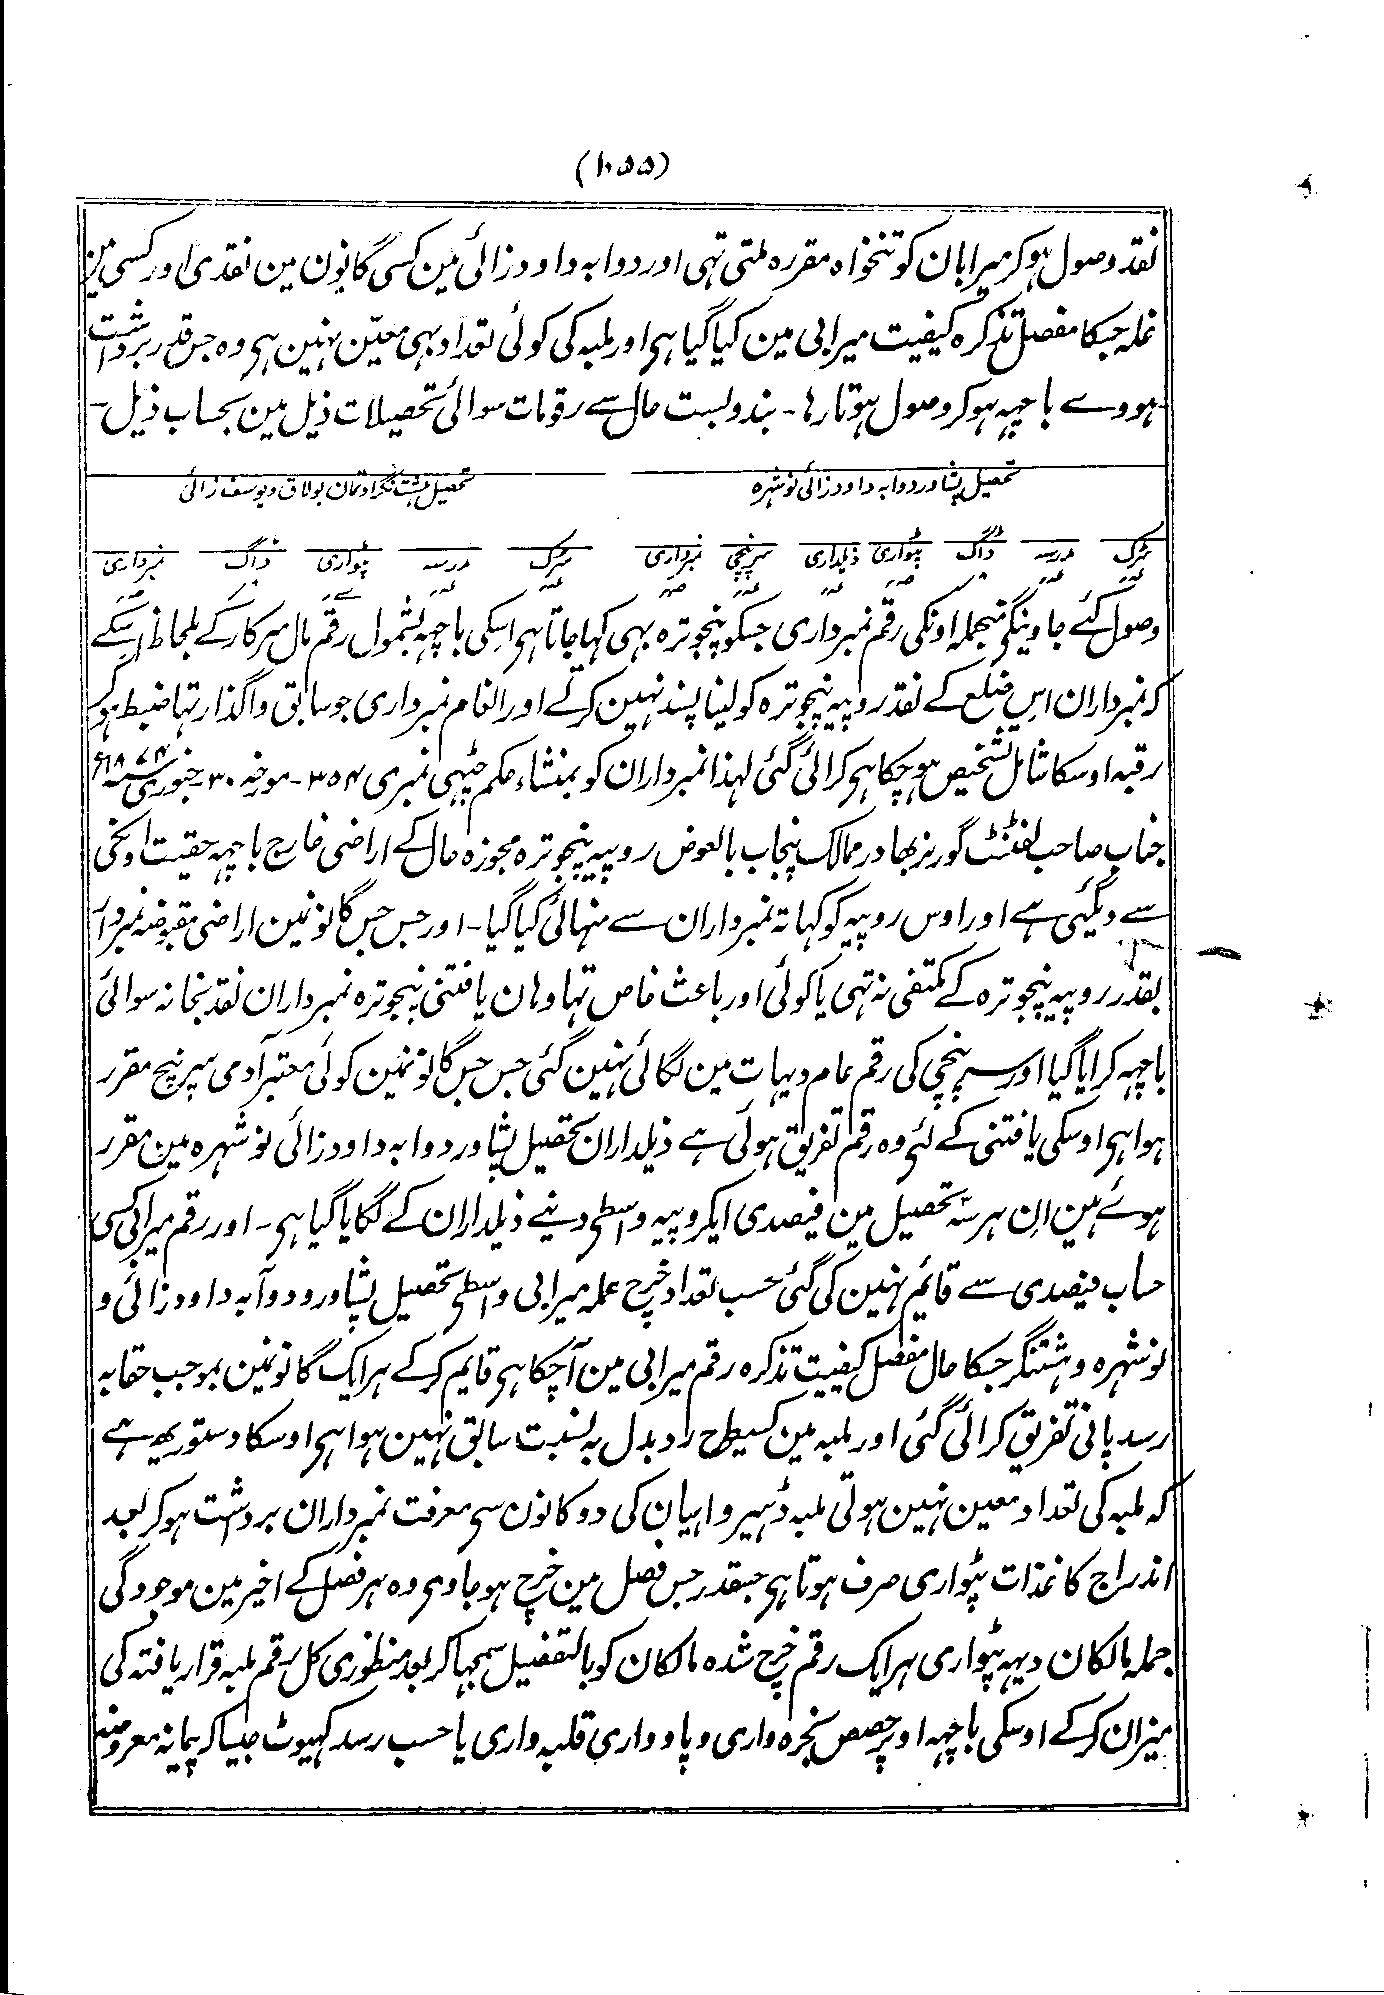 (۱۰۵۵)
نقد وصول ہو کر میرابان کو تنخواہ مقررہ ملتی تہی اور دوابہ داودزائی مین کسی گانون مین نقدی اور کسی مین
غلہ جسکا مفصل تذکرہ کیفیت میرابی مین کیا گیا ہی اور ملبہ کی کوئی تعداد بہی معیّن نہین ہی وہ جس قدر برداشت
ہووے باچہہ ہو کر وصول ہوتا رہا ۔ بندوبست حال سے رقومات سوائی تحصیلات ذیل مین بحساب ذیل ۔
تحصیل پشاور دوابہ داودزائی نوشہرہ
تحصیل ہشت نگر اوتمان بولاق و یوسف زائی
سڑک مدرسہ ڈاک پٹواری ذیلداری سرپنچی نمبرداری
سڑک مدرسہ پٹواری ڈاک نمبرداری
وصول کئے جاوینگی منجملہ اونکی رقم نمبرداری جسکو پنچوترہ بہی کہا جاتا ہی اسکی باچہہ بشمول رقم مال سرکار کے بلحاظ اسکے
کہ نمبرداران اس ضلع کے نقد روپیہ پنچوترہ کو لینا پسند نہین کرتے اور انعام نمبرداری جو سابق واگذار تہا ضبط ہو کر
رقبہ اوسکا شامل تشخیص ہو چکا ہی کرائی گئی لہذا نمبرداران کو بمنشاء حکم چٹہی نمبری ۳۵۴ ۔ مورخہ ۳۰ ۔ جنوری سنہ ۱۸۷۴ء
جناب صاحب لفٹنٹ گورنر بہادر ممالک پنجاب بالعوض روپیہ پنچوترہ مجوزہ حال کے اراضی خارج باچہہ حقیت اونکی
سے دیگئی ہے اور اوس روپیہ کو کہاتہ نمبرداران سے منہائی کیا گیا ۔ اور جس جس گانونمین اراضی مقبوضہ نمبرداران
بقدر روپیہ پنچوترہ کے مکتفی نہ تہی یا کوئی اور باعث خاص تہا وہان یافتنی پنچوترہ نمبرداران نقد بخانہ سوائی
باچہہ کرایا گیا اور سرپنچی کی رقم عام دیہات مین لگائی نہین گئی جس جس گانونمین کوئی معتبر آدمی سرپنچ مقرر
ہوا ہی اوسکی یافتنی کے لئے وہ رقم تفریق ہوئی ہے ذیلداران تحصیل پشاور دوابہ داودزائی نوشہرہ مین مقرر
ہوئے ہین ان ہر سہ تحصیل مین فیصدی ایکروپیہ واسطی دینے ذیلداران کے لگایا گیا ہی ۔ اور رقم میرابی کسی
حساب فیصدی سے قائیم نہین کی گئی حسب تعداد خرچ عملہ میرابی واسطی تحصیل پشاور و دوآبہ داودزائی و
نوشہرہ و ہشتنگر جسکا حال مفصل کیفیت تذکرہ رقم میرابی مین آچکا ہی قایم کر کے ہر ایک گانونمین بموجب حقابہ
رسد پانی تفریق کرائی گئی اور ملبہ مین کسیطرح رد بدل بہ نسبت سابق نہین ہوا ہی اوسکا دستور یہ ہے
کہ ملبہ کی تعداد معین نہین ہوتی ملبہ ڈہیر واہیان کی دوکانون سی معرفت نمبرداران برداشت ہو کر بعد
اندراج کاغذات پٹواری صرف ہوتا ہی جسقدر جس فصل مین خرچ ہو جاوی وہ ہر فصل کے اخیر مین موجودگی
جملہ مالکان دیہہ پٹواری ہر ایک رقم خرچ شدہ مالکان کو بالتفصیل سمجہا کر بعد منظوری کل رقم ملبہ قرار یافتہ کی
میزان کر کے اوسکی باچہہ اوپر حصص بخرہ واری و پاوواری قلبہ واری یا حسب رسد کہیوٹ جیسا کہ پیمانہ معروضہ